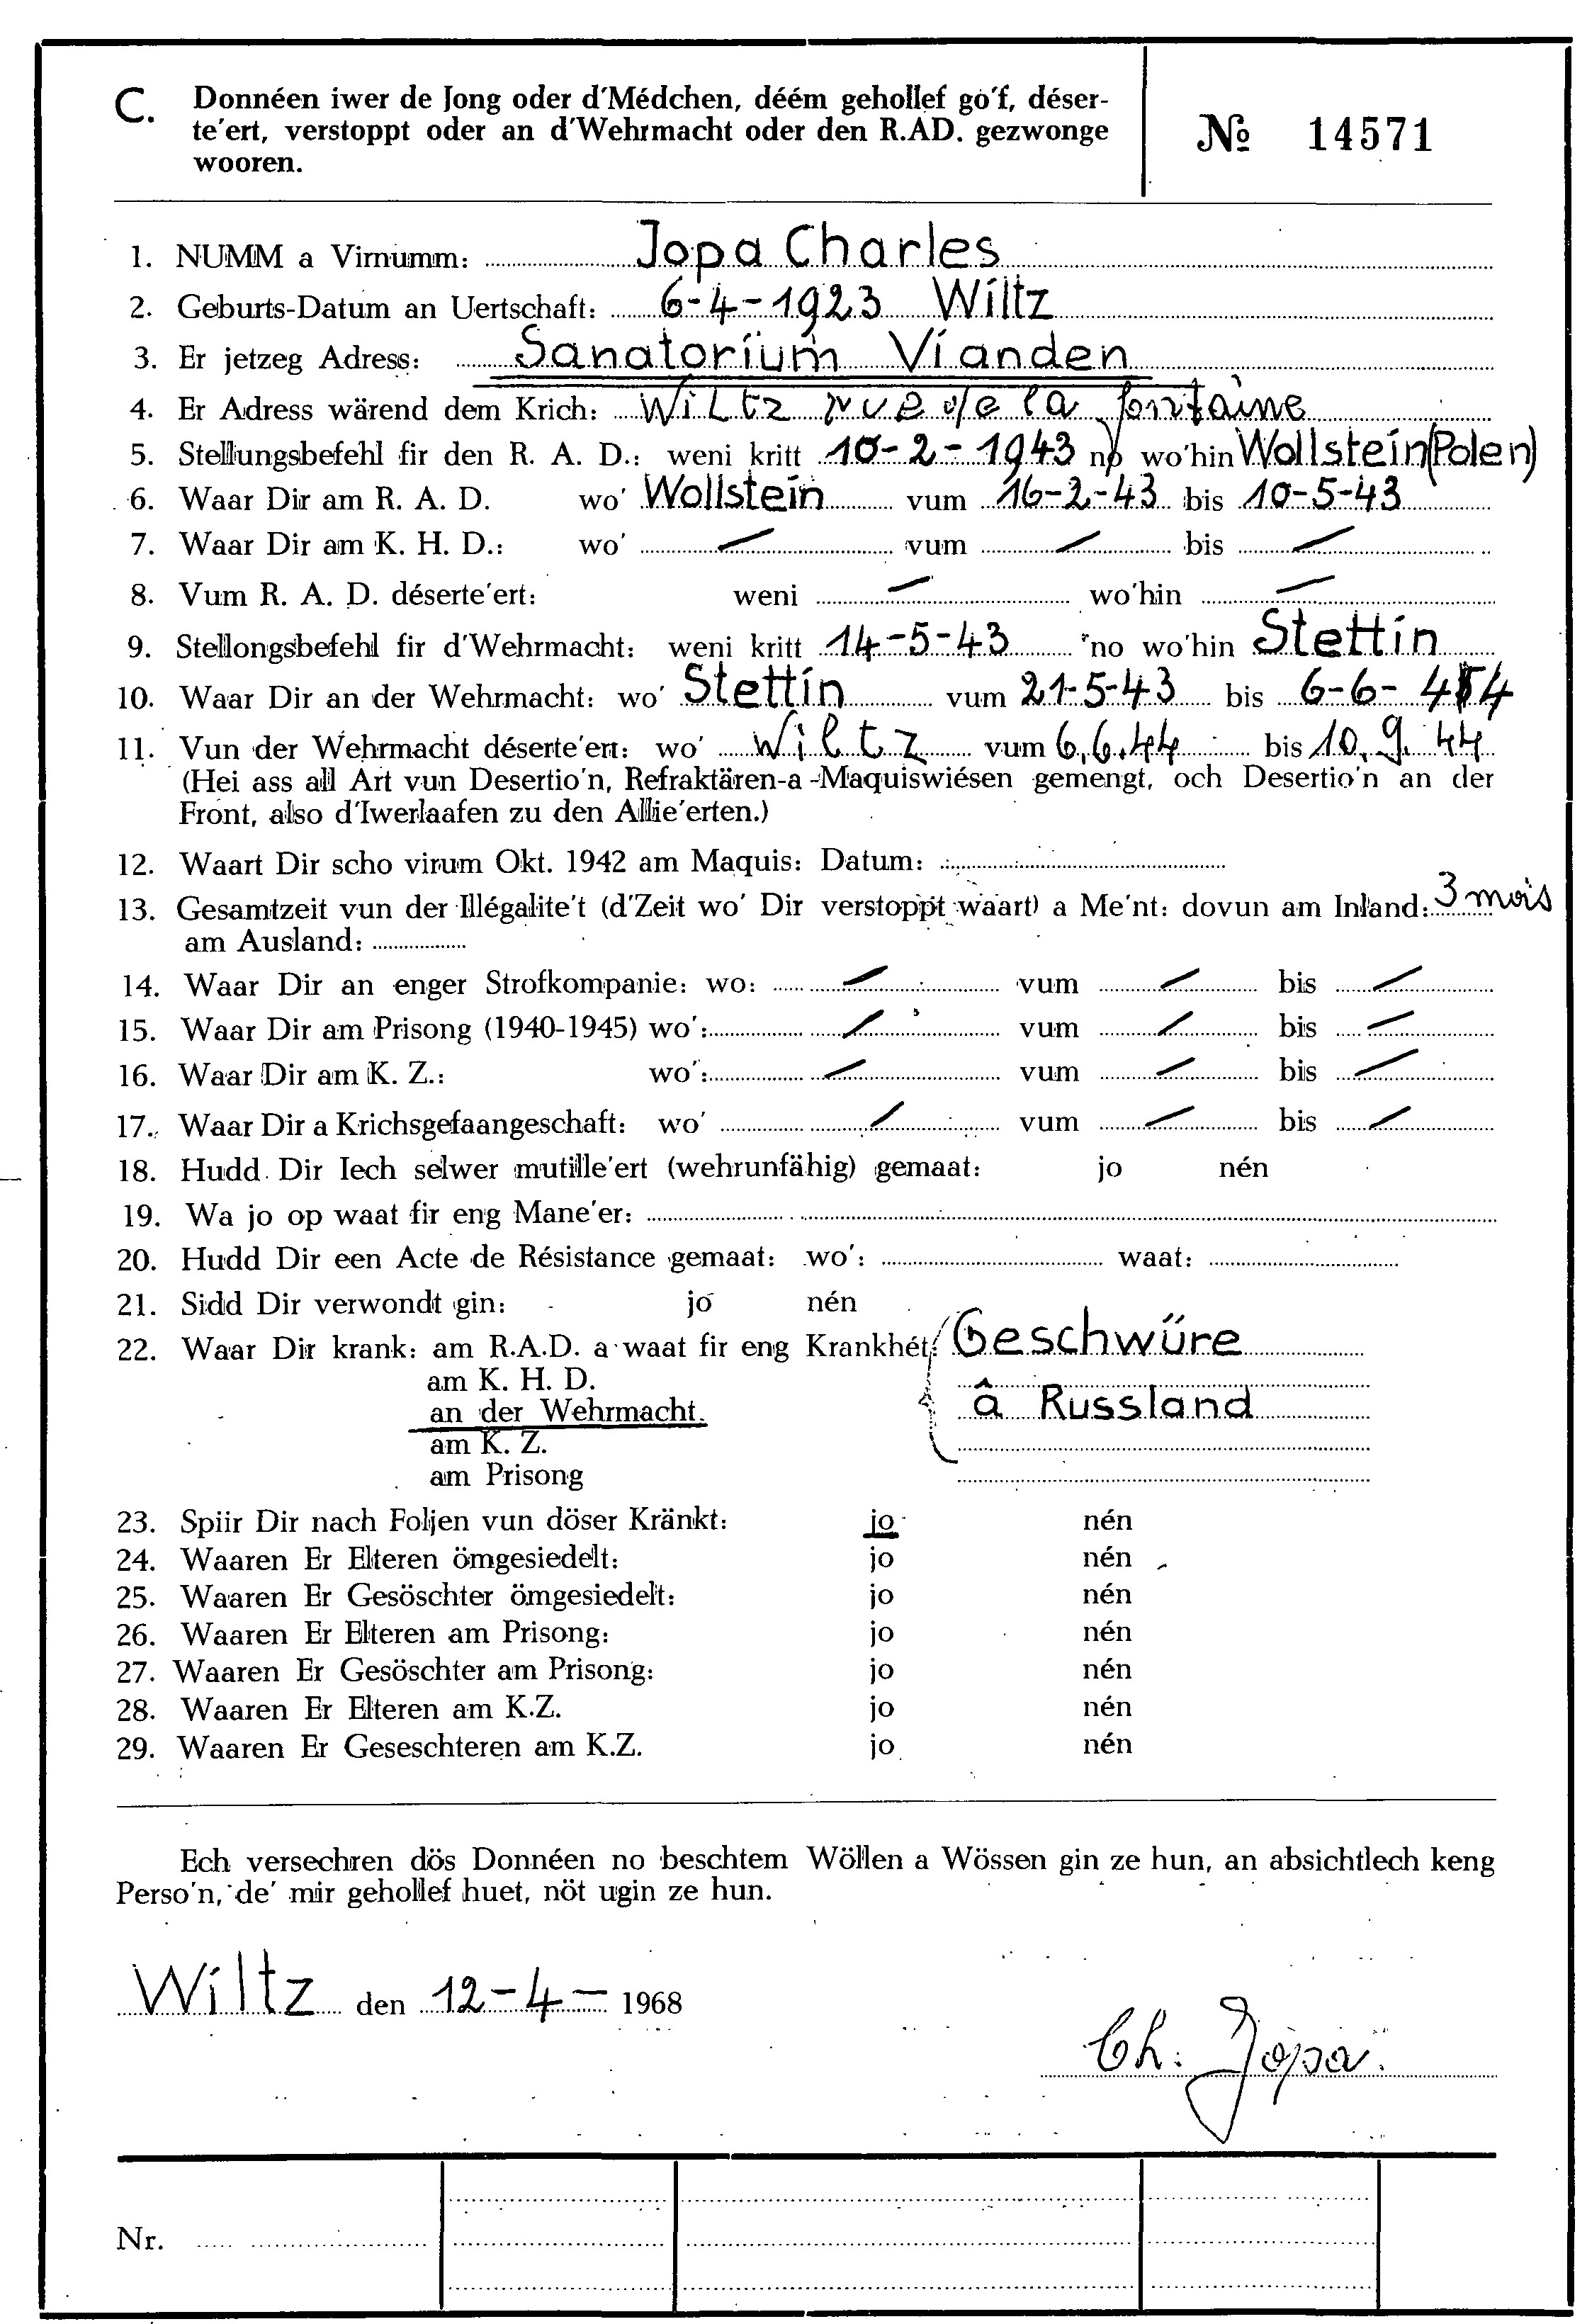 C. Donnéen iwer de Jong oder d'Médchen, déém gehollef go'f, déser-
te'ert, verstoppt oder an d'Wehrmacht oder den R.AD. gezwonge
wooren.
№ 14571
1. NUMM a Virnumm: Jopa Charles
2. Geburts-Datum an Uertschaft: 6-4-1923 Wiltz
3. Er jetzeg Adress: Sanatorium Vianden
4. Er Adress wärend dem Krich: Wiltz rue de la fontaine
5. Stellungsbefehl fir den R. A. D.: weni kritt 10-2-1943 no wo'hin Wollstein (Polen)
6. Waar Dir am R. A. D. wo' Wollstein vum 16-2-43 bis 10-5-43
7. Waar Dir am K. H. D.: wo' — vum — bis —
8. Vum R. A. D. déserte'ert: weni — wo'hin —
9. Stellongsbefehl fir d'Wehrmacht: weni kritt 14-5-43 no wo'hin Stettin
10. Waar Dir an der Wehrmacht: wo' Stettin vum 21-5-43 bis 6-6-44
11. Vun der Wehrmacht déserte'ert: wo' Wiltz vum 6.6.44 bis 10.9.44
(Hei ass all Art vun Desertio'n, Refraktären-a -Maquiswiésen gemengt, och Desertio'n an der
Front, also d'Iwerlaafen zu den Allie'erten.)
12. Waart Dir scho virum Okt. 1942 am Maquis: Datum:
13. Gesamtzeit vun der Illégalite't (d'Zeit wo' Dir verstoppt waart) a Me'nt: dovun am Inland: 3 mois
am Ausland:
14. Waar Dir an enger Strofkompanie: wo: — vum — bis —
15. Waar Dir am Prisong (1940-1945) wo': — vum — bis —
16. Waar Dir am K. Z.: wo': — vum — bis —
17. Waar Dir a Krichsgefaangeschaft: wo' — vum — bis —
18. Hudd Dir Iech selwer mutille'ert (wehrunfähig) gemaat: jo nén
19. Wa jo op waat fir eng Mane'er:
20. Hudd Dir een Acte de Résistance gemaat: wo': waat:
21. Sidd Dir verwondt gin: jo nén
22. Waar Dir krank: am R.A.D. a waat fir eng Krankhét: Geschwüre
am K. H. D.
an der Wehrmacht. â Russland
am K. Z.
am Prisong
23. Spiir Dir nach Foljen vun döser Kränkt: jo nén
24. Waaren Er Elteren ömgesiedelt: jo nén
25. Waaren Er Gesöschter ömgesiedelt: jo nén
26. Waaren Er Elteren am Prisong: jo nén
27. Waaren Er Gesöschter am Prisong: jo nén
28. Waaren Er Elteren am K.Z. jo nén
29. Waaren Er Geseschteren am K.Z. jo nén
Ech versechren dös Donnéen no beschtem Wöllen a Wössen gin ze hun, an absichtlech keng
Perso'n, de' mir gehollef huet, nöt ugin ze hun.
Wiltz den 12-4- 1968
Ch. Jopa.
Nr.